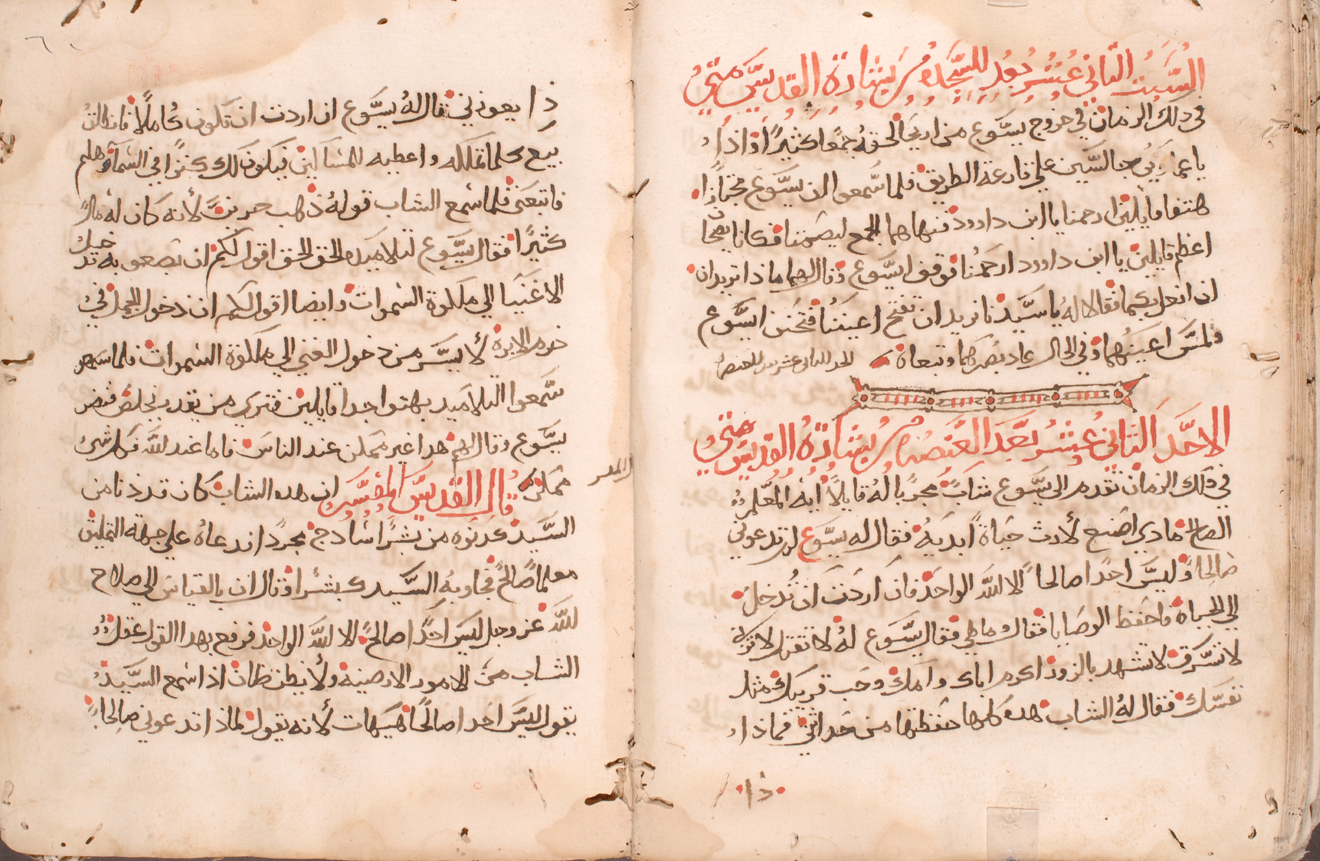 السبت الثاني عشر بعد للسجده من بشارة القديس متي
في ذلك الزمان في خروج يسوع من اريحا لحقه جمعا كثيرا واذا
باعما يين جالسين علي قارعة الطريق فلما سمعوا ان يسوع مجتازا
هتفوا قايلين ارحمنا يا ابن داوود فنهاهما الجمع ليصمتا فكانا يصيحا
اعظم قايلين يا ابن داوود ارحمنا فوقف يسوع وقال لهما ماذا تريدان
ان افعل بكما فقالا له يا سيدنا نريد ان تفتح اعيننا فتحنن يسوع
ولمس اعينهما وفي الحال عاد بصرهما وتبعاه
الاحد الثاني عشر بعد العنصره من بشارة القديس متي
في ذلك الزمان تقدم الي يسوع شاب مجربا له قايلا ايه المعلم
الصالح ماذي اصنع لارث حياة ابديه فقال له يسوع لم تدعوني
صالحا وليس احدا صالحا الا لله الواحد فان اردت ان تدخل
الي الحياه فاحفظ الوصايا فقال وما هي فقال يسوع له لا تقتل لا تزن
لا تسرق لا تشهد بالزور اكرم اباك وامك وحب قريبك مثل
نفسك فقال له الشاب هذه كلها حفظتها من حداثتي فماذا
ذا
ذا يعوزني فقال له يسوع ان اردت ان تكون كاملا فانطلق
بيع كلما تملكه واعطيه للمساكين فيكون لك كنزا في السما وهلم
فاتبعني فلما سمع الشاب قوله ذهب حزينا لانه كان له مال
كثيرا فقال يسوع لتلاميده الحق الحق اقول لكم ان بصعوبه تدخل
الاغنيا الي ملكوة السموات وايضا اقول لكم ان دخول الجمل في
خرم الابرة لايسر من دخول الغني الي ملكوة السموات فلما
سمعوا التلاميد بهتوا جدا قايلين فتري من يقدر يخلص فنظر
يسوع وقال لهم هدا غير ممكن عند الناس فاما عند الله فكل شي
ممكن قال القديس المفسر ان هده الشاب كان قد دنا من
السيد بشرا سادج مجردا ند عاه علي جهة التمليق
معلما صالح فجاوبه السيد كبشرا وقال ان بالقياس الي صلاح
لله عز وجل ليس احدا صالح الا لله الواحد فرفع بهدا القول عقل
الشاب من الامور الارضيه ولا يظن ظان اذا سمع السيد
يقول ليس احدا صالحا هيهات لانه يقول لماذا تدعوني صالحا